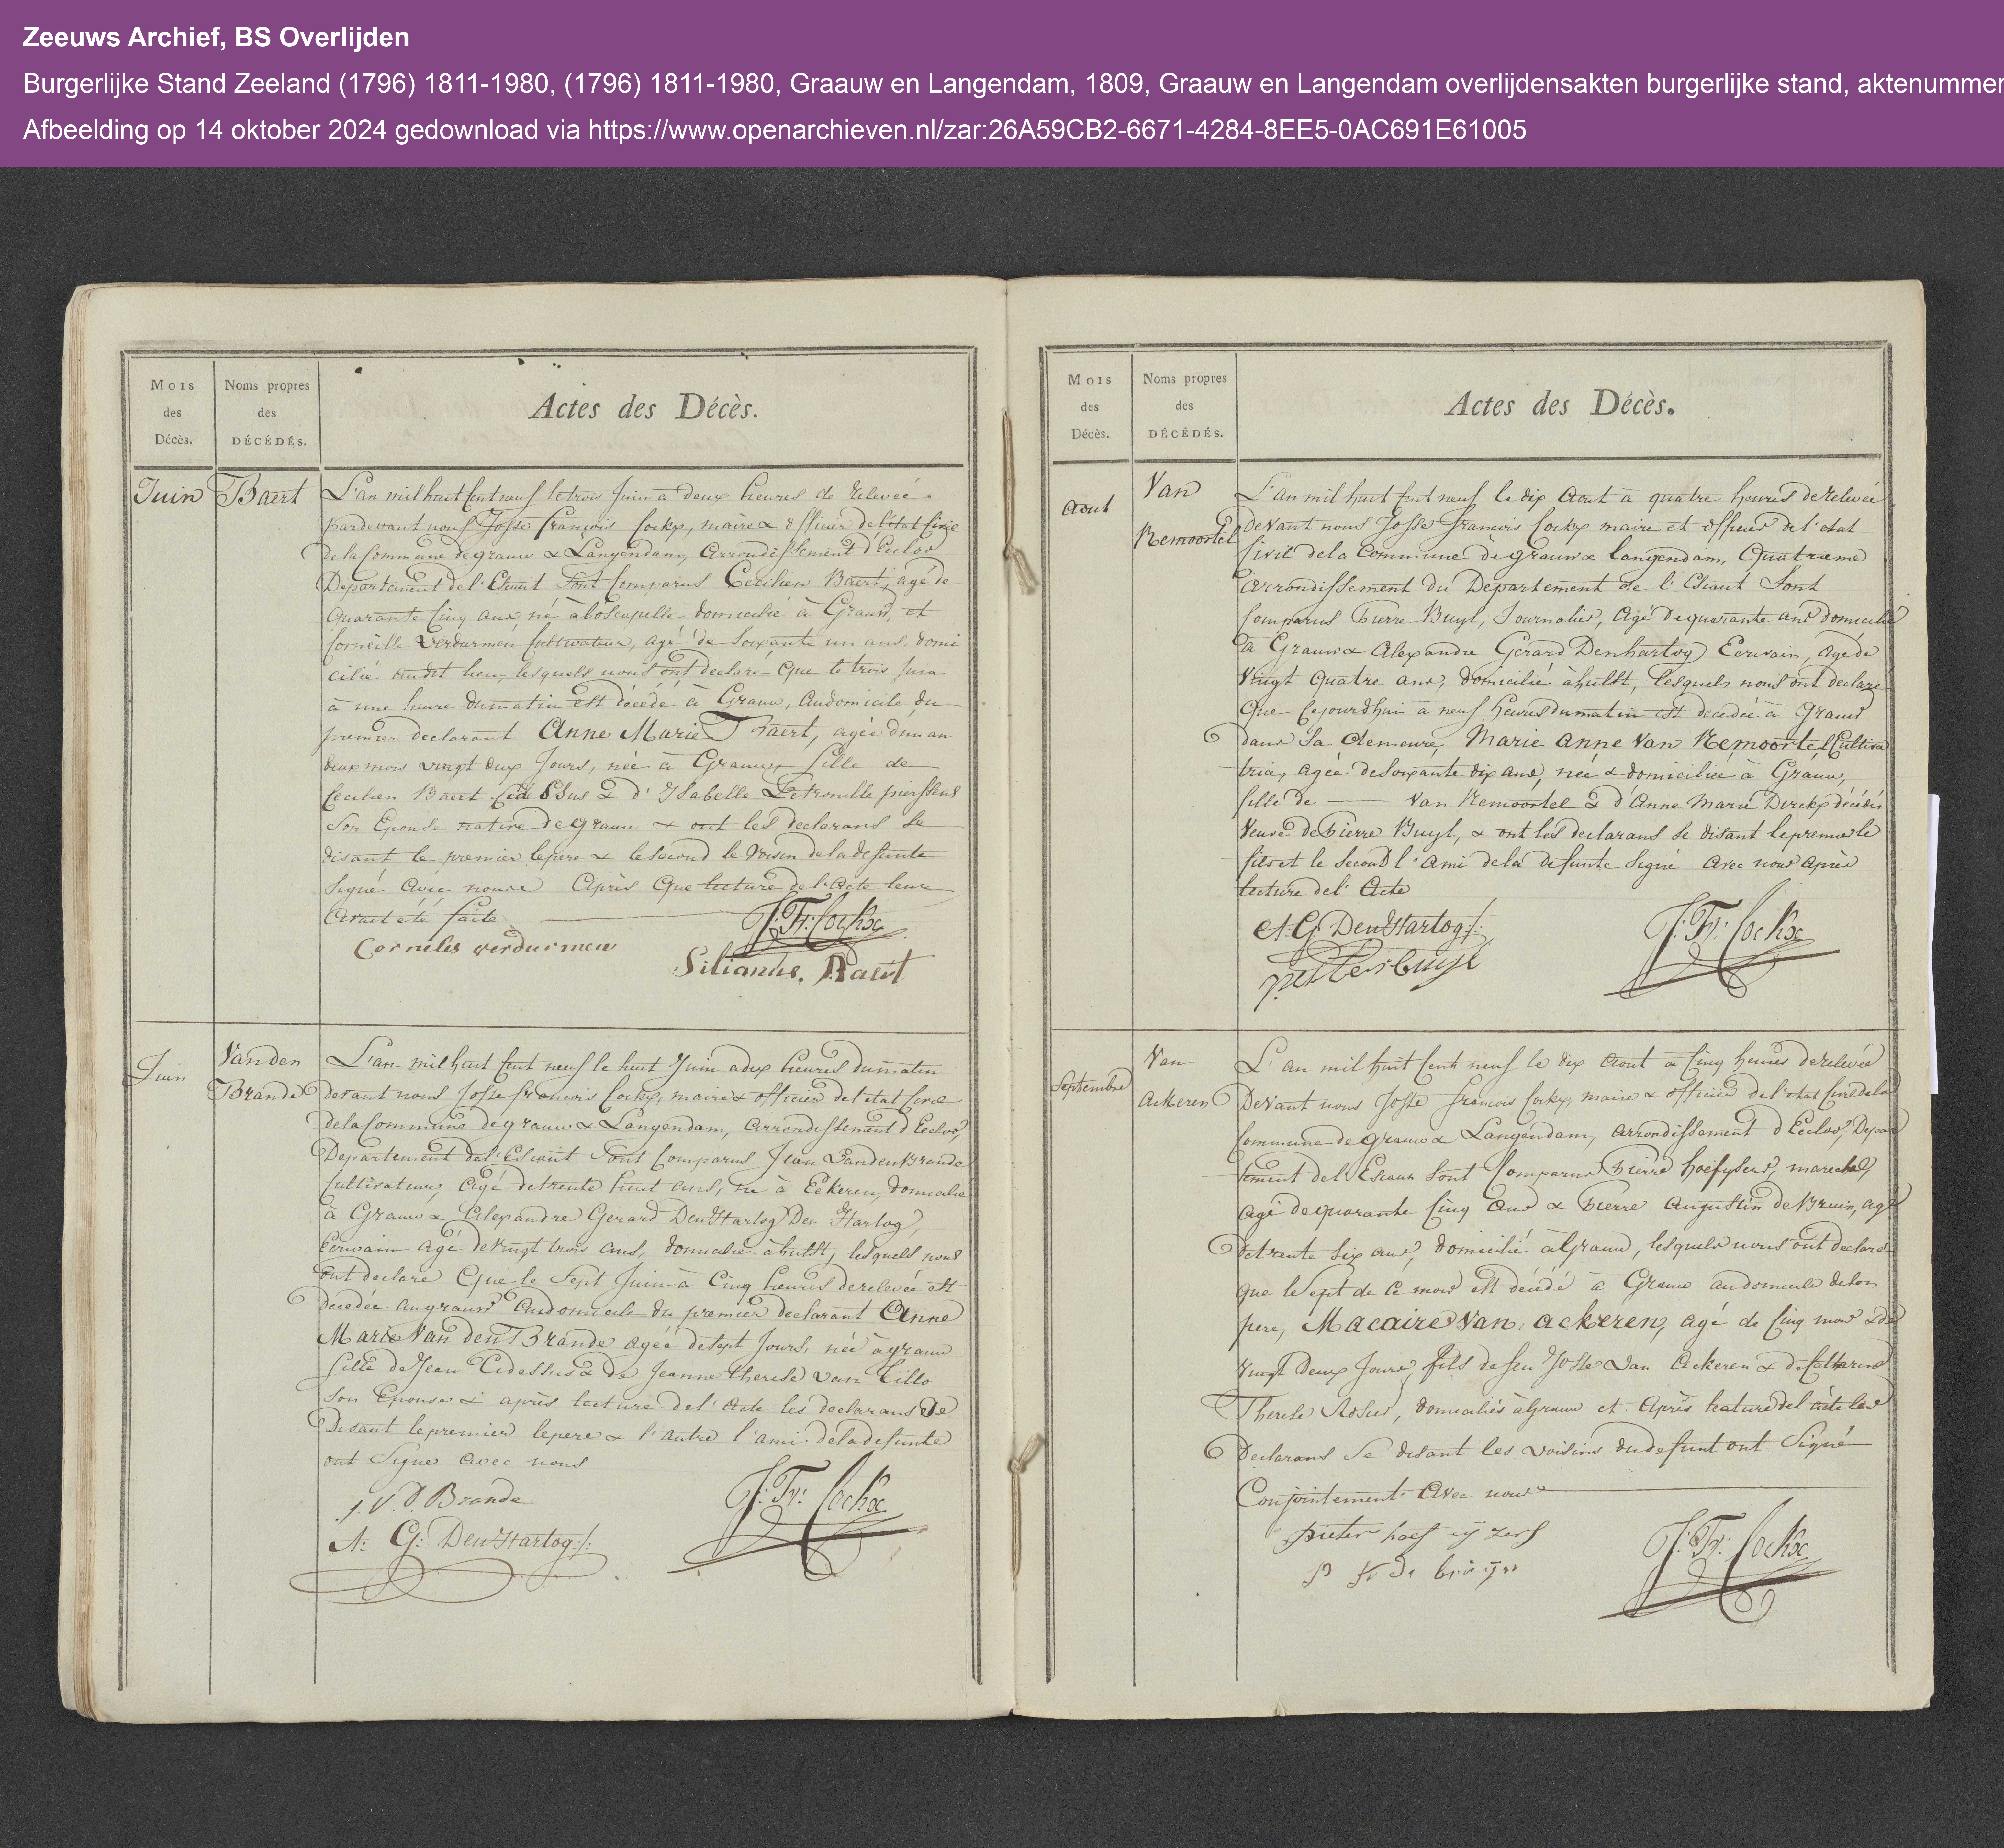 Zeeuws Archief, BS Overlijden
Burgerlijke Stand Zeeland (1796) 1811-1980, (1796) 1811-1980, Graauw en Langendam, 1809, Graauw en Langendam overlijdensakten burgerlijke stand, aktenummer
Afbeelding op 14 oktober 2024 gedownload via https://www.openarchieven.nl/zar:26A59CB2-6671-4284-8EE5-0AC691E61005
Mois
des
Décès.
Noms propres
des
DÉCÉDÉS.
Actes des Décès.
Juin
Baert
L'an mil huit cent neuf le trois Juin à deux heures de relevée
pardevant nous Josse François Cockx, maire & officier de l'état civil
de la Commune de grauw & Langendam, arrondissement d'Eecloo
Departement de l'Escaut sont Comparus Cecilien Baert, agé de
quarante cinq ans né à boscapelle domicilié à Grauw, et
Corneille Verdurmen Cultivateur, agé de soixante un ans, domi
cilié audit lieu, lesquels nous ont declaré que le trois Juin
à une heure du matin est décédé à Grauw, au domicile du
premier declarant Anne Marie Baert, agée d'un an
deux mois vingt deux Jours, née à Grauw, fille de
Cecilien Baert cidessus & d'Isabelle Petronille pierssens
son Epouse native de grauw & ont les declarans se
disant le premier le pere & le second le voisin de la defunte
signé avec nous Après que lecture de l'acte leur
avait été faite
J: Fr: Cockx
Cornelis verdurmen
Silianus. Baert
Juin
Van den
Brande
L'an mil huit cent neuf le huit Juin a dix heures du matin
devant nous Josse francois Cockx, maire & officier de l'etat civil
de la Commune de grauw & Langendam, arrondissement d'Eecloo,
Departement de l'Escaut sont Comparus Jean Vanden Brande
Cultivateur, agé de trente huit ans, né à Eekeren, domicilié
à Grauw & Alexandre Gerard Den Hartog Den Hartog,
Ecrivain agé de vingt trois ans, domicilié à hulst, lesquels nous
ont declaré que le sept Juin à Cinq heures de relevée est
décedée au grauw au domicile du premier declarant Anne
Marie Van den Brande agée de sept Jours, née à grauw
fille de Jean Cidessus & de Jeanne therese van Lillo
son Epouse & après lecture de l'acte les declarans se
Disant le premier le pere & l'autre l'ami de la defunte
ont Signe avec nous
J. V. D. Brande
J: Fr: Cockx
A: G: Den Hartog
Mois
des
Décès.
Noms propres
des
DÉCÉDÉS.
Actes des Décès.
Aout
Van
Remoortel
L'an mil huit cent neuf le dix Aout à quatre heures de relevée
devant nous Josse francois Cockx maire et officier de l'etat
Civil de la Commune de grauw & langendam, Quatrieme
arrondissement du Departement de l'Escaut sont
Comparus Pierre Buyl, Journalier, agé de quarante ans domicilié
à Grauw & Alexandre Gerard Denhartog Ecrivain, agé de
vingt quatre ans, domicilié à hulst, lesquels nous ont declaré
que Cejourdhui a neuf heures du matin est decedée à Grauw
dans sa demeure, Marie Anne Van Remoortel Cultiva
trice, agée de soixante dix ans, née & domiciliée à Grauw,
fille de — Van Remoortel & d'Anne Marie Dirckx décédés
veuve de Pierre Buyl, & ont les declarans se disant le premier le
fils et le second l'ami de la defunte Signé avec nous Après
lecture de l'acte
A: G: Den Hartog
J: Fr: Cockx
pieter buyl
Septembre
Van
Ackeren
L'an mil huit cent neuf le dix Aout à Cinq heures de relevée
Devant nous Josse francois Cockx, maire & officier de l'etat civil de la
Commune de grauw & Langendam, arrondissement d'Eecloo, Depar
tement de l'Escaut sont Comparus Pierre hoefysers, marechal,
agé de quarante Cinq ans & Pierre Augustin de Bruin, agé
de trente six ans, domicilié à Grauw, lesquels nous ont declaré
que le sept de ce mois est décédé à Grauw au domicile de son
pere, Macaire Van Ackeren, agé de Cinq mois & de
vingt Deux Jours, fils de feu Josse van Ackeren & de Catharine
Therese, domiciliés à Grauw et Après lecture de l'acte les
Declarans se disant les voisins du defunt ont Signé
Conjointement avec nous
pieter hoef ijzers
J: Fr: Cockx